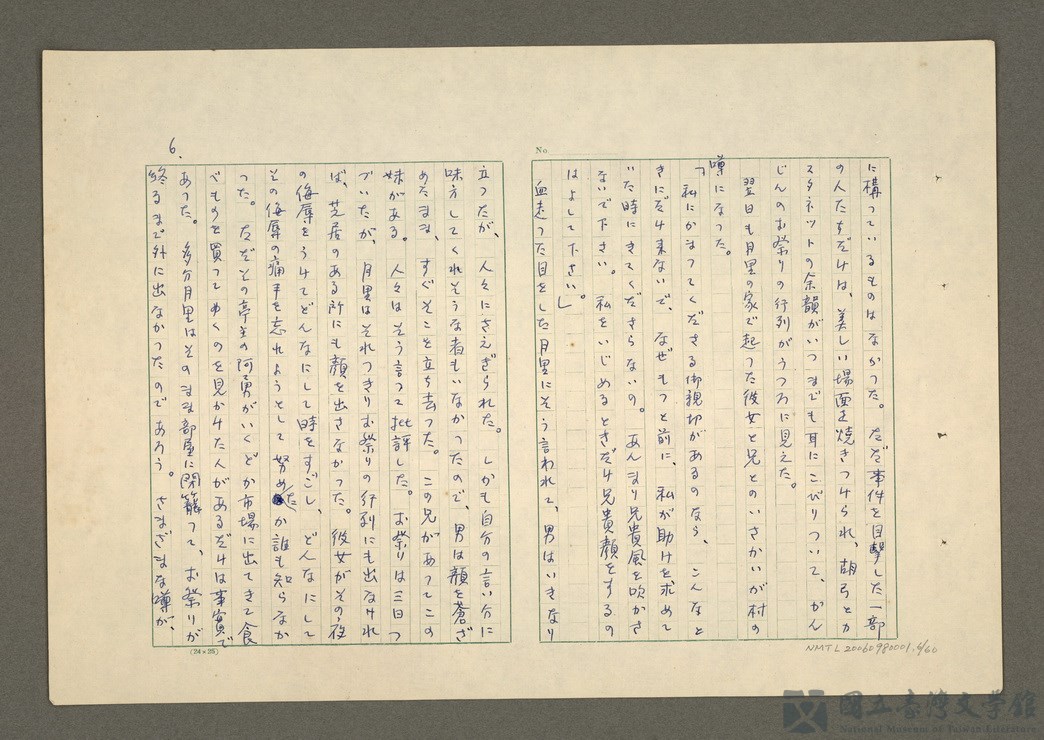 No.
に構っているものはなかった。ただ事件を目撃した一部
の人たちだけは、美しい場面を焼きつけられ、胡弓とカ
スタネットの余韻がいつまでも耳にこびりついて、かん
じんのお祭りの行列がうつろに見えた。
翌日も月里の家で起った彼女と兄とのいさかいが村の
噂になった。
「私にかまってくださる御親切があるのなら、こんなと
きにだけ来ないで、なぜもっと前に、私が助けを求めて
いた時にきてくださらないの。あんまり兄貴風を吹かさ
ないで下さい。私をいじめるときだけ兄貴顔をするの
はよして下さい。」
血走った目をした月里にそう言われて、男はいきなり
立ったが、人々にさえぎられた。しかも自分の言い分に
味方してくれそうな者もいなかったので、男は顔を蒼ざ
めたまま、すぐそこを立ち去った。この兄があってこの
妹がある。人々はそう言って批評した。お祭りは三日つ
づいたが、月里はそれっきりお祭りの行列にも出なけれ
ば、芝居のある所にも顔を出さなかった。彼女がその夜
の侮辱をうけてどんなにして時をすごし、どんなにして
その侮辱の痛手を忘れようとして努めたか誰も知らなか
った。ただその亭主の阿勇がいくどか市場に出てきて食
べものを買ってゆくのを見かけた人があるだけは事実で
あった。多分月里はそのまま部屋に閉籠って、お祭りが
終るまで外に出なかったのであろう。さまざまな噂が、
6.
(24×25)
NMTL20060980001.6/60
國立臺灣文學館
National Museum of Taiwan Literature